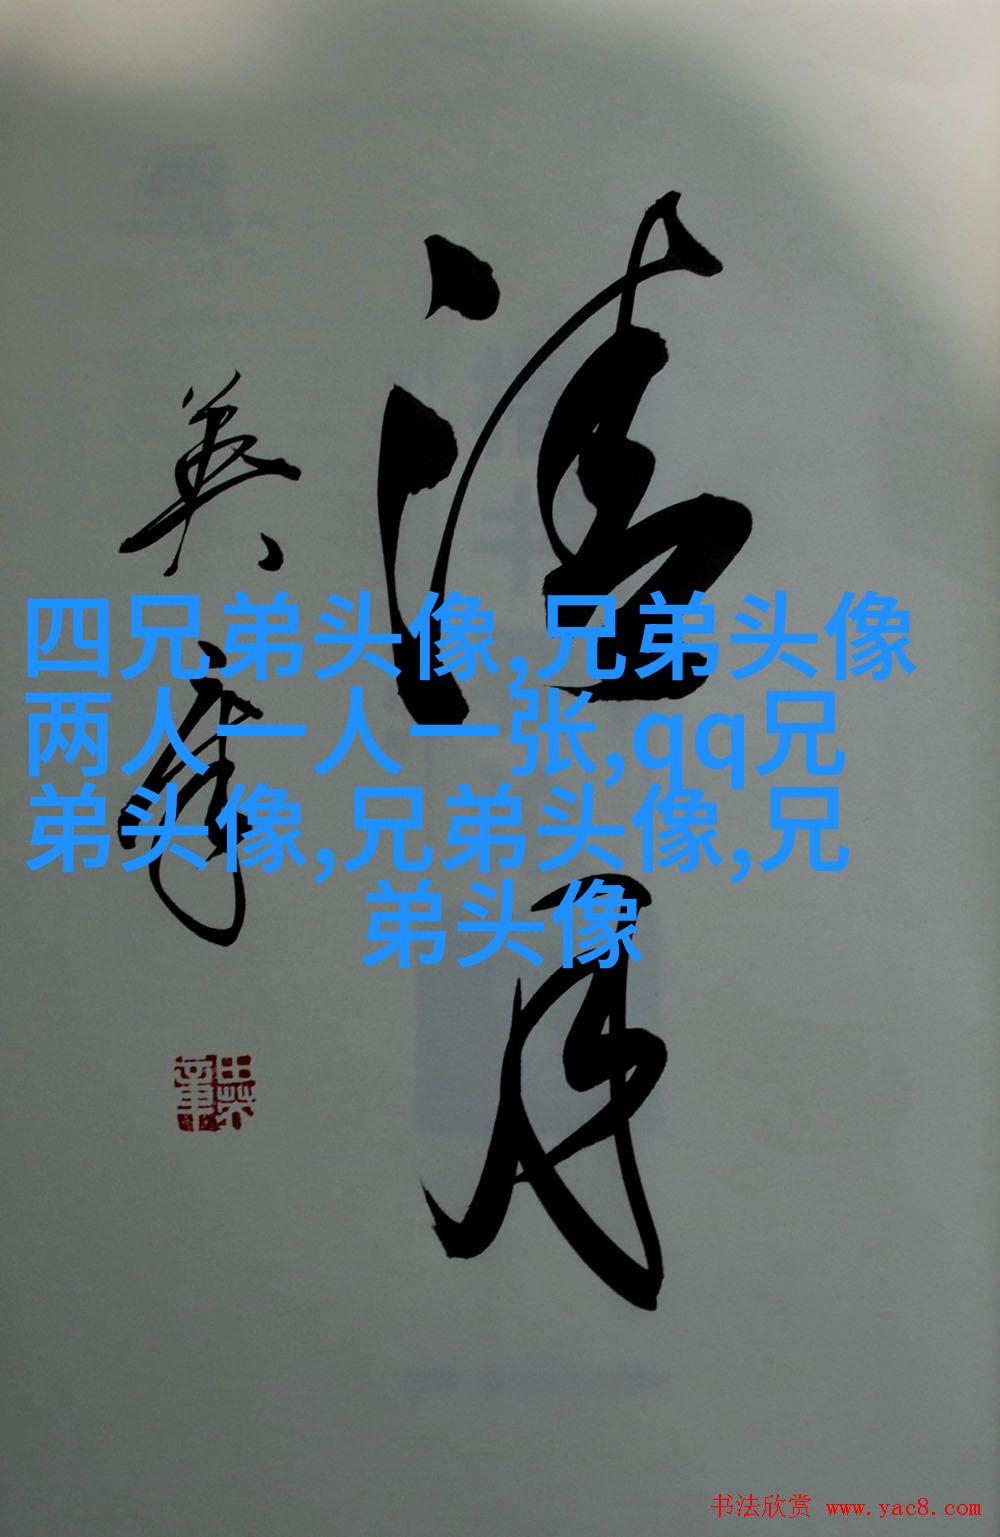 清月
英章
田英章
四兄弟头像,兄弟头像
两人一人一张,qq兄
弟头像,兄弟头像,兄
弟头像
书法欣赏 www.yac8.com